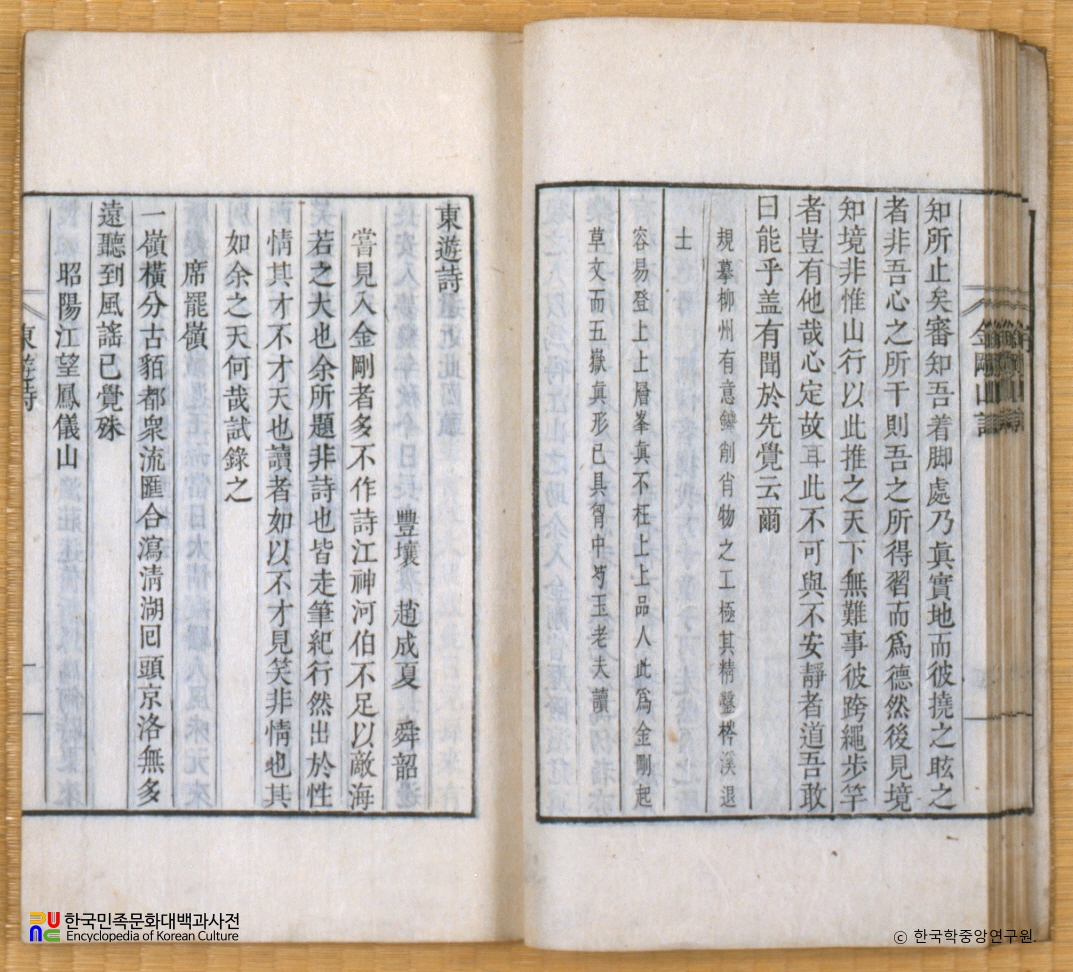 知所止矣審知吾着脚處乃眞實地而彼撓之眩之
者非吾心之所干則吾之所得習而爲德然後見境
知境非惟山行以此推之天下無難事彼跨繩步竿
者豈有他哉心定故耳此不可與不安靜者道吾敢
曰能乎盖有聞於先覺云爾
規摹柳州有意鑱削肖物之工極其精鑿 溪退
士
容易登上上層峯眞不枉上上品人此爲金剛起
草文而五嶽眞形已具胷中芍玉老夫讀
金剛山記
東遊詩
豐壤 趙成夏 舜韶
嘗見入金剛者多不作詩江神河伯不足以敵海
若之大也余所題非詩也皆走筆紀行然出於性
情其才不才天也讀者如以不才見笑非情也其
如余之天何哉試錄之
席罷嶺
一嶺橫分古貊都衆流匯合瀉淸湖回頭京洛無多
遠聽到風謠已覺殊
昭陽江望鳳儀山
東遊詩
한국민족문화대백과사전
Encyclopedia of Korean Culture
ⓒ 한국학중앙연구원.